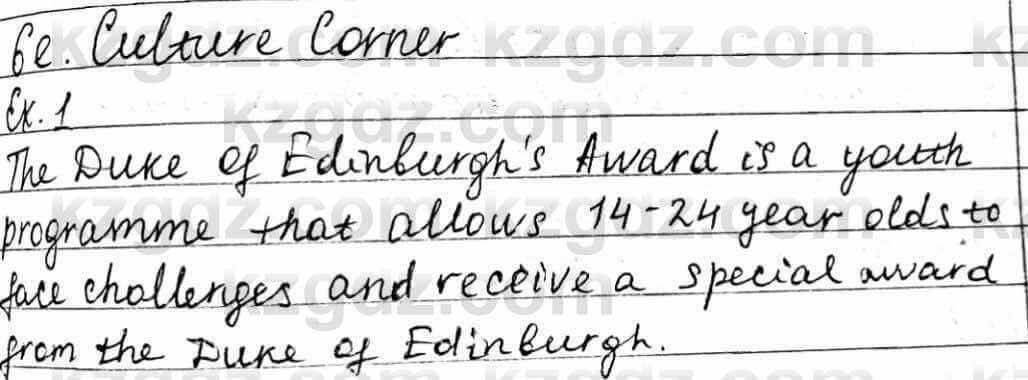 6e. Culture Corner
Ex. 1
The Duke of Edinburgh's Award is a youth
programme that allows 14-24 year olds to
face challenges and receive a special award
from the Duke of Edinburgh.
kzgdz.com